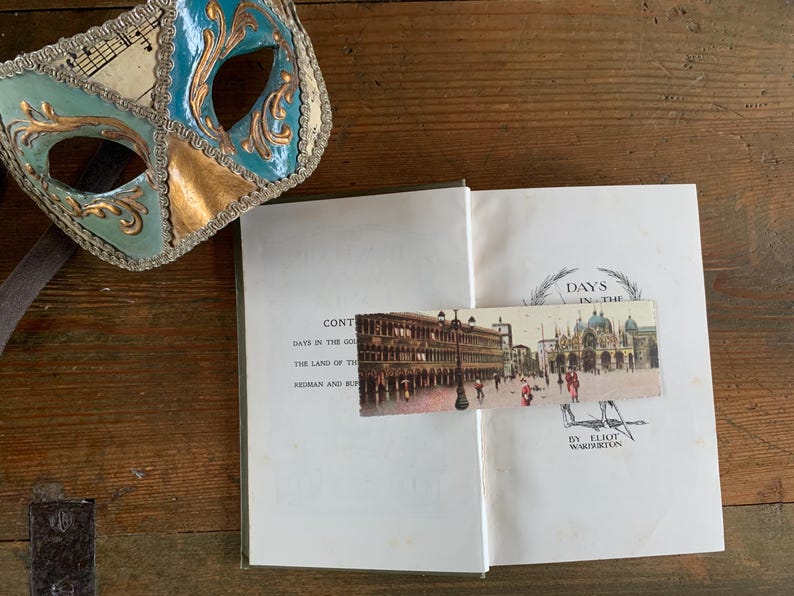 CONT
DAYS IN THE GOL
THE LAND OF TH
REDMAN AND BUF
DAYS
IN THE
BY ELIOT
WARBURTON